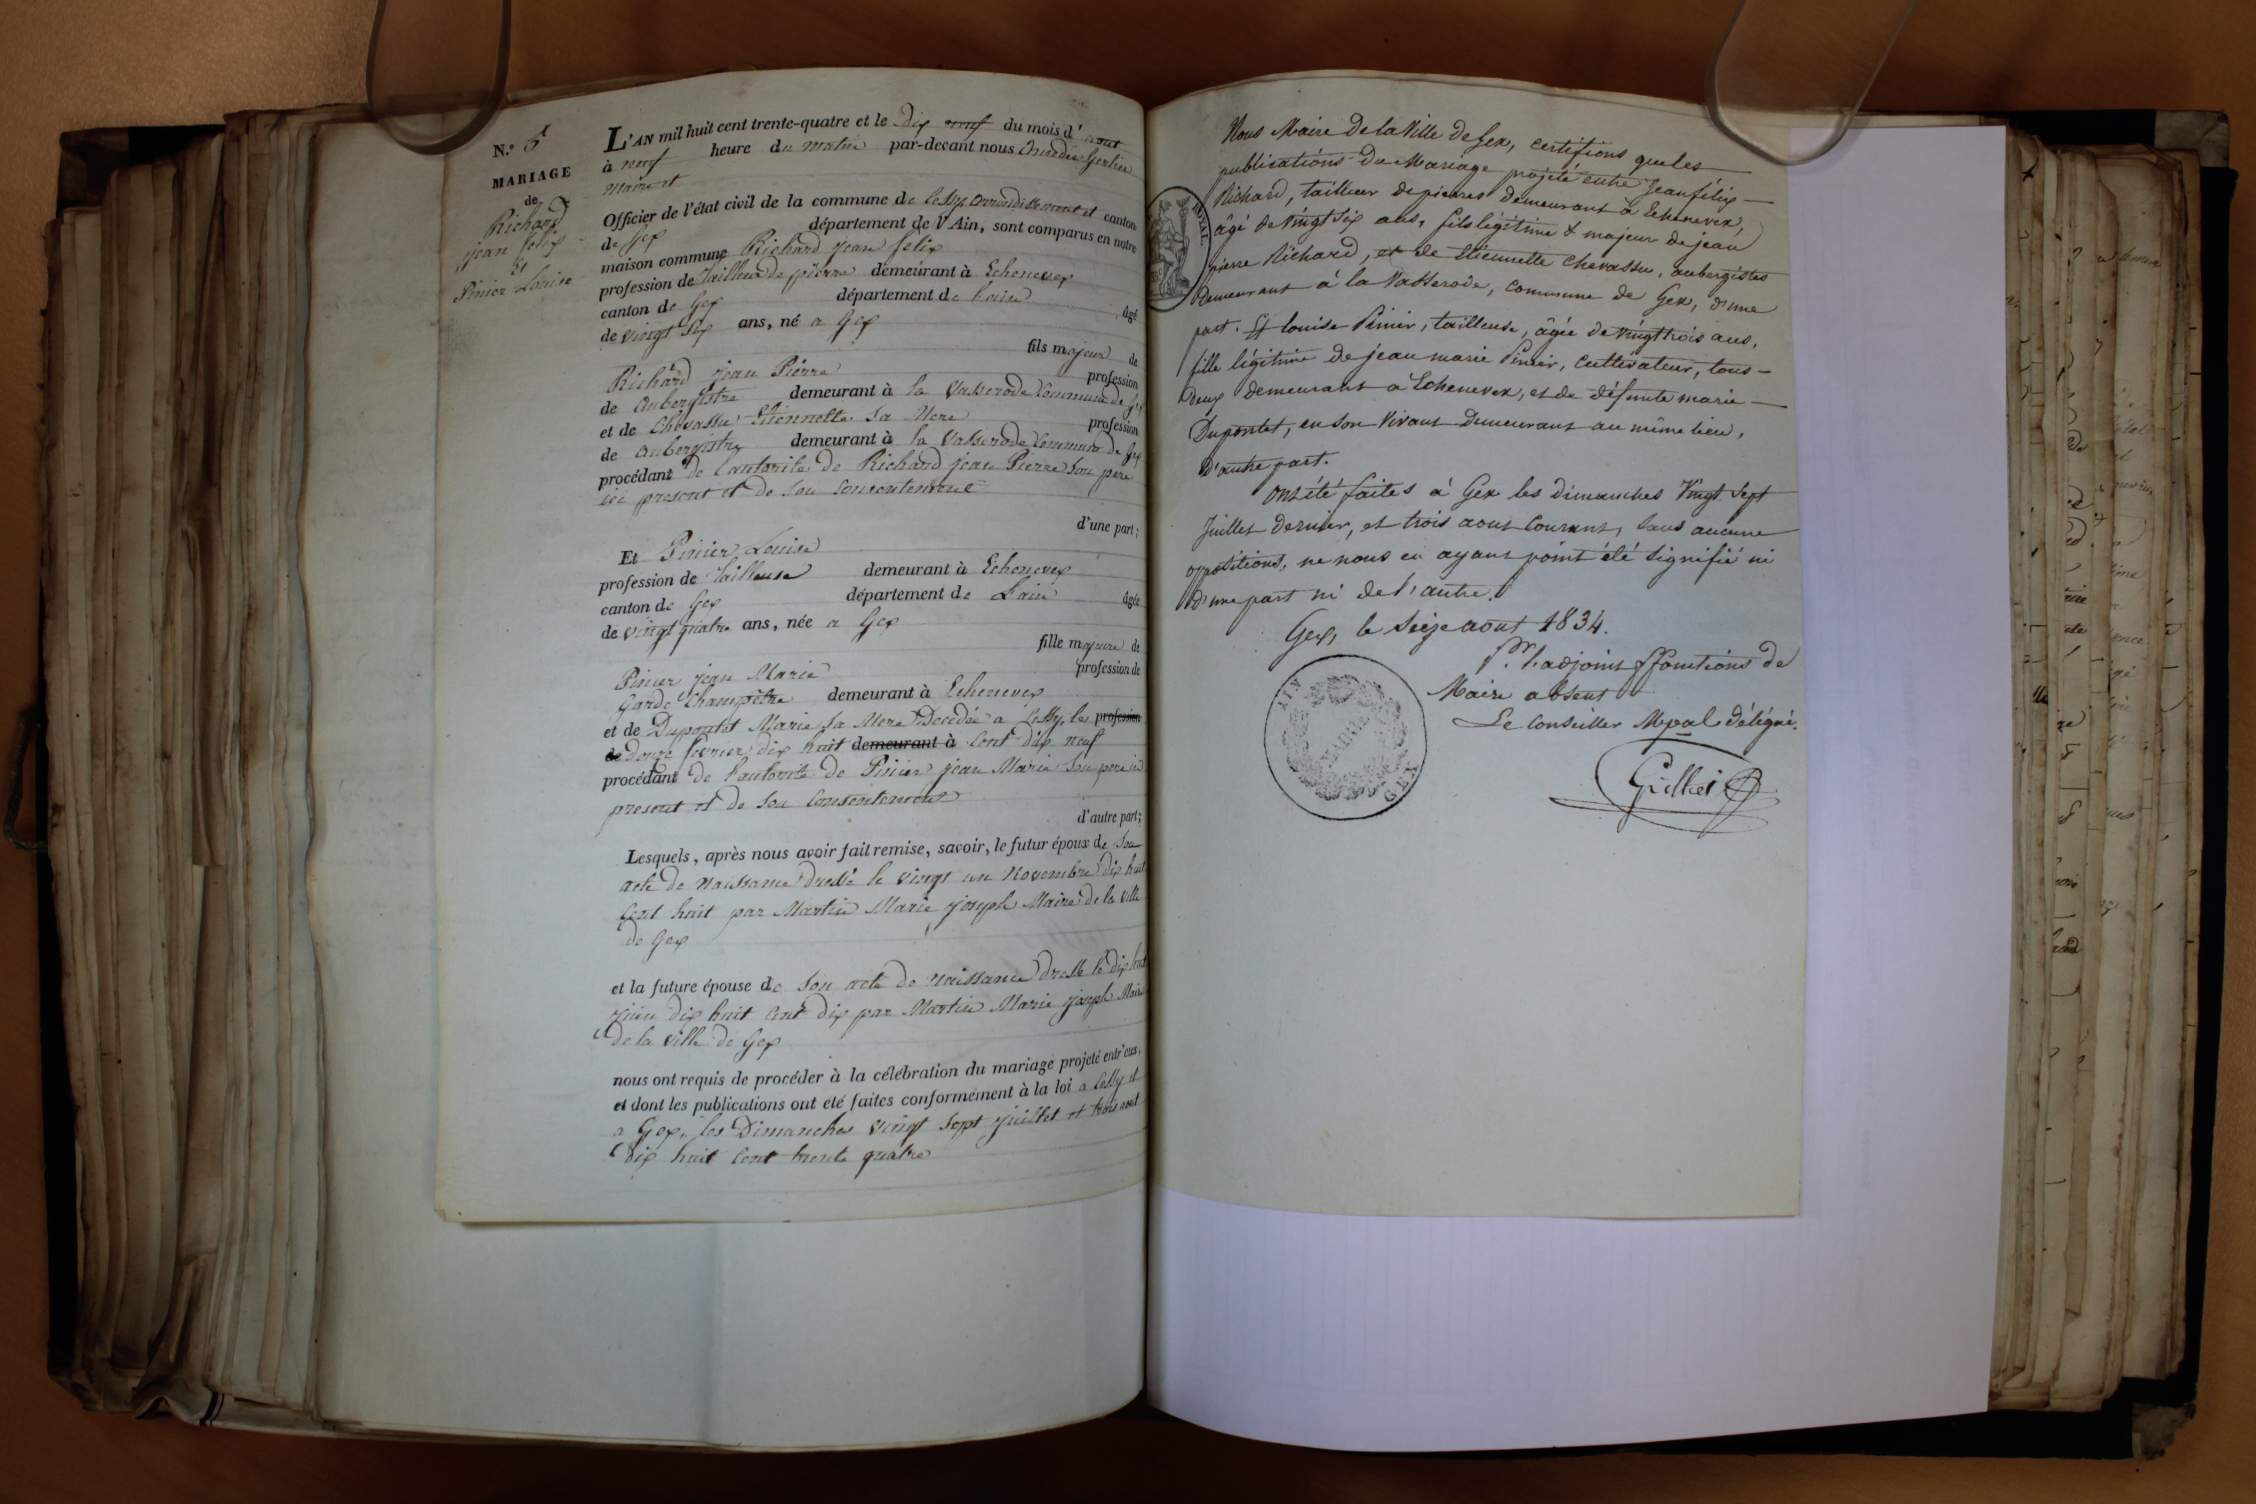 N.° 5
MARIAGE
de
Richard
jean felix
Et
Pinier Louise
L'AN mil huit cent trente-quatre et le Dix neuf du mois d'aout
à neuf heure du matin par-devant nous Amédée Gerlier
Maire et
Officier de l'état civil de la commune de Cessy arrondissement et canton
de Gex département de l'Ain, sont comparus en notre
maison commune Richard jean felix
profession de Tailleur de pierre demeurant à Echenevex
canton de Gex département de Lain âgé
de vingt six ans, né a Gex
fils majeur de
Richard jean Pierre profession
de Aubergistre demeurant à la Vasserode Commune de Gex
et de Chevassu Etiennette sa Mere profession
de aubergistre demeurant à la Vasserode Commune de Gex
procédant de l'autorite de Richard jean Pierre son pere
ici present et de son consentement
d'une part;
Et Pinier Louise
profession de Tailleuse demeurant à Echenevex
canton de Gex département de Lain âgée
de vingt quatre ans, née a Gex
fille majeure de
Pinier jean Marie profession de
Garde Champêtre demeurant à Echenevex
et de Dupontet Marie sa Mere Décédée a Cessy le profession
de Douze fevrier dix huit demeurant à Cent dix neuf
procédant de l'autorite de Pinier jean Marie son pere ici
present et de son consentement
d'autre part;
Lesquels, après nous avoir fait remise, savoir, le futur époux de son
acte de naissance dressé le vingt un Novembre dix huit
Cent huit par Martin Marie joseph Maire de la ville
de Gex
et la future épouse de son acte de naissance dressé le dix huit
juin dix huit cent dix par Martin Marie joseph Maire
de la ville de Gex
nous ont requis de procéder à la célébration du mariage projeté entr'eux,
et dont les publications ont eté faites conformément à la loi a Cessy et
a Gex, les Dimanches vingt sept juillet et trois aout
dix huit cent trente quatre
ROYAL
Nous Maire de la Ville de Gex, certifions que les
publications du Mariage projeté entre Jean félix
Richard, tailleur de pierres demeurant à Echenevex,
âgé de vingt six ans, fils légitime & majeur de jean
pierre Richard, et de Etiennette Chevassu, aubergistes
demeurant à la Vasserode, commune de Gex, d'une
part. Et louise Pinier, tailleuse, âgée de vingt trois ans,
fille légitime de jean marie Pinier, cultivateur, tous
deux demeurant a Echenevex, et de défunte marie
Dupontet, en son vivant demeurant au même lieu,
d'autre part.
Ont été faites à Gex les dimanches vingt sept
Juillet dernier, et trois aout courant, sans aucune
oppositions, ne nous en ayant point été signifié ni
d'une part ni de l'autre.
Gex, le Seize aout 1834.
Pr. l'adjoint ffonctions de
Maire absent
Le Conseiller Mpal délégué.
AIN
MAIRIE
GEX
Grilliet